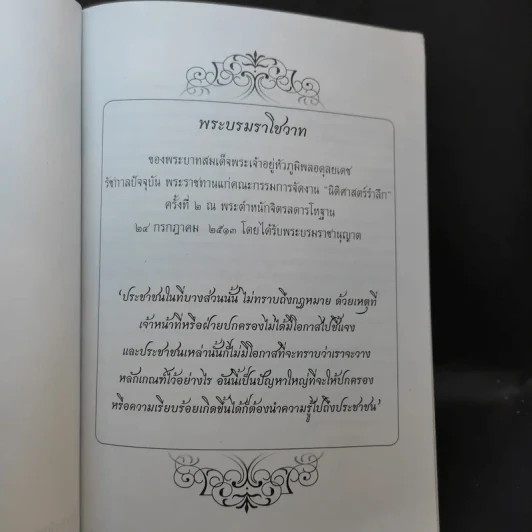 พระบรมราโชวาท
ของพระบาทสมเด็จพระเจ้าอยู่หัวภูมิพลอดุลยเดช
รัชกาลปัจจุบัน พระราชทานแก่คณะกรรมการจัดงาน "นิติศาสตร์รำลึก"
ครั้งที่ ๒ ณ พระตำหนักจิตรลดารโหฐาน
๒๔ กรกฎาคม ๒๕๑๓ โดยได้รับพระบรมราชานุญาต
'ประชาชนในที่บางส่วนนั้น ไม่ทราบถึงกฎหมาย ด้วยเหตุที่
เจ้าหน้าที่หรือฝ่ายปกครองไม่ได้มีโอกาสไปชี้แจง
และประชาชนเหล่านั้นก็ไม่มีโอกาสที่จะทราบว่าเราจะวาง
หลักเกณฑ์ไว้อย่างไร อันนี้เป็นปัญหาใหญ่ที่จะให้ปกครอง
หรือความเรียบร้อยเกิดขึ้นได้ก็ต้องนำความรู้ไปถึงประชาชน'